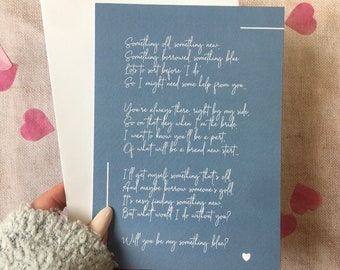 Something old, something new
Something borrowed something blue
Lots to sort before I do
So I might need some help from you.
You're always there right by my side
So on that day when I'm the bride
I want to know you'll be a part
Of what will be a brand new start.
I'll get myself something that's old
And maybe borrow someone's gold
It's easy finding something new
But what would I do without you?
Will you be my something blue?